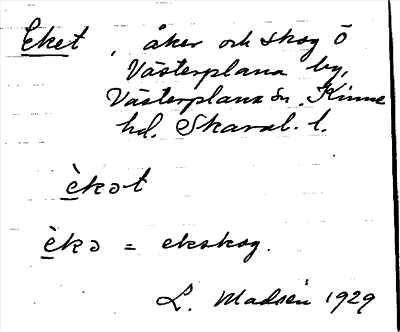 Eket, åker och skog Ö
Västerplana by,
Västerplana sn. Kinne
hd. Skarab. l.
èkət
èkə = ekskog.
L. Madsén 1929